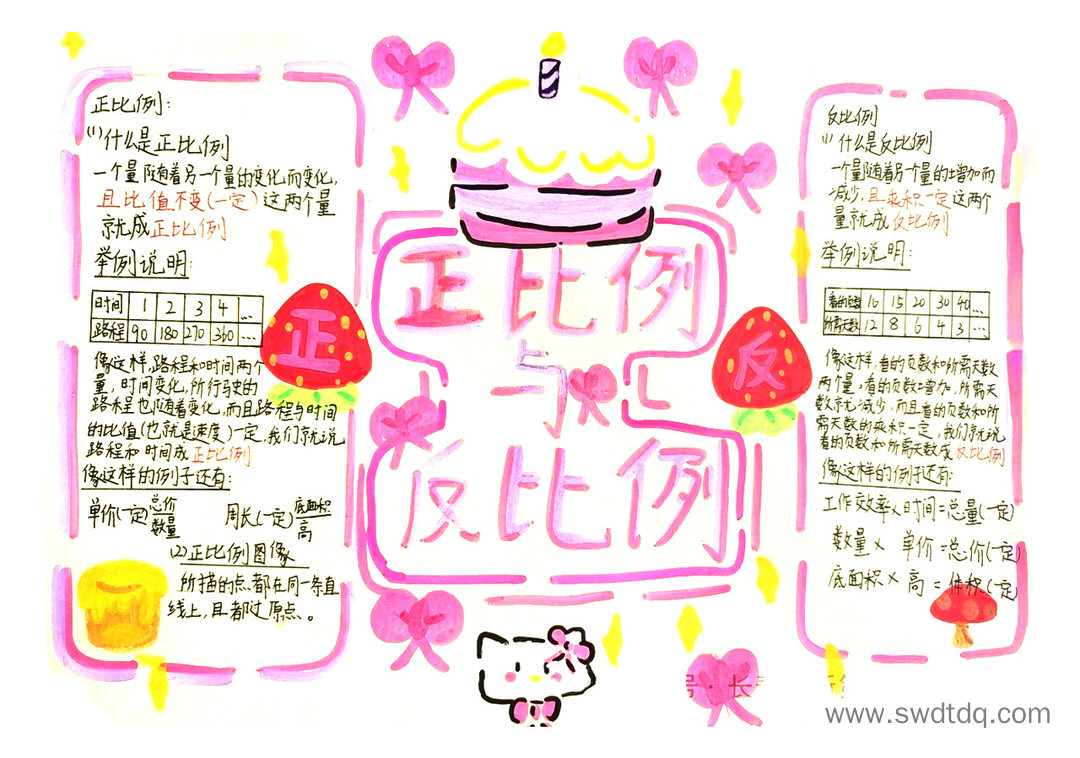 正比例:
(1)什么是正比例
一个量随着另一个量的变化而变化,
且比值不变(一定)这两个量
就成正比例
举例说明:
时间 1 2 3 4 ...
路程 90 180 270 360 ...
像这样,路程和时间两个
量,时间变化,所行驶的
路程也随着变化,而且路程与时间
的比值(也就是速度)一定,我们就说
路程和时间成正比例
像这样的例子还有:
单价(一定)总价/数量 周长(一定)底面积/高
(2)正比例图像
所描的点都在同一条直
线上,且都过原点。
正比例
与
反比例
正
反
反比例
(1)什么是反比例
一个量随着另一个量的增加而
减少,且乘积一定这两个
量就成反比例
举例说明:
看的页数 10 15 20 30 40 ...
所需天数 12 8 6 4 3 ...
像这样,看的页数和所需天数
两个量,看的页数增加,所需天
数就减少,而且看的页数和所
需天数的乘积一定,我们就说
看的页数和所需天数成反比例
像这样的例子还有:
工作效率×时间=总量(一定)
数量×单价=总价(一定)
底面积×高=体积(一定)
号·长
www.swdtdq.com